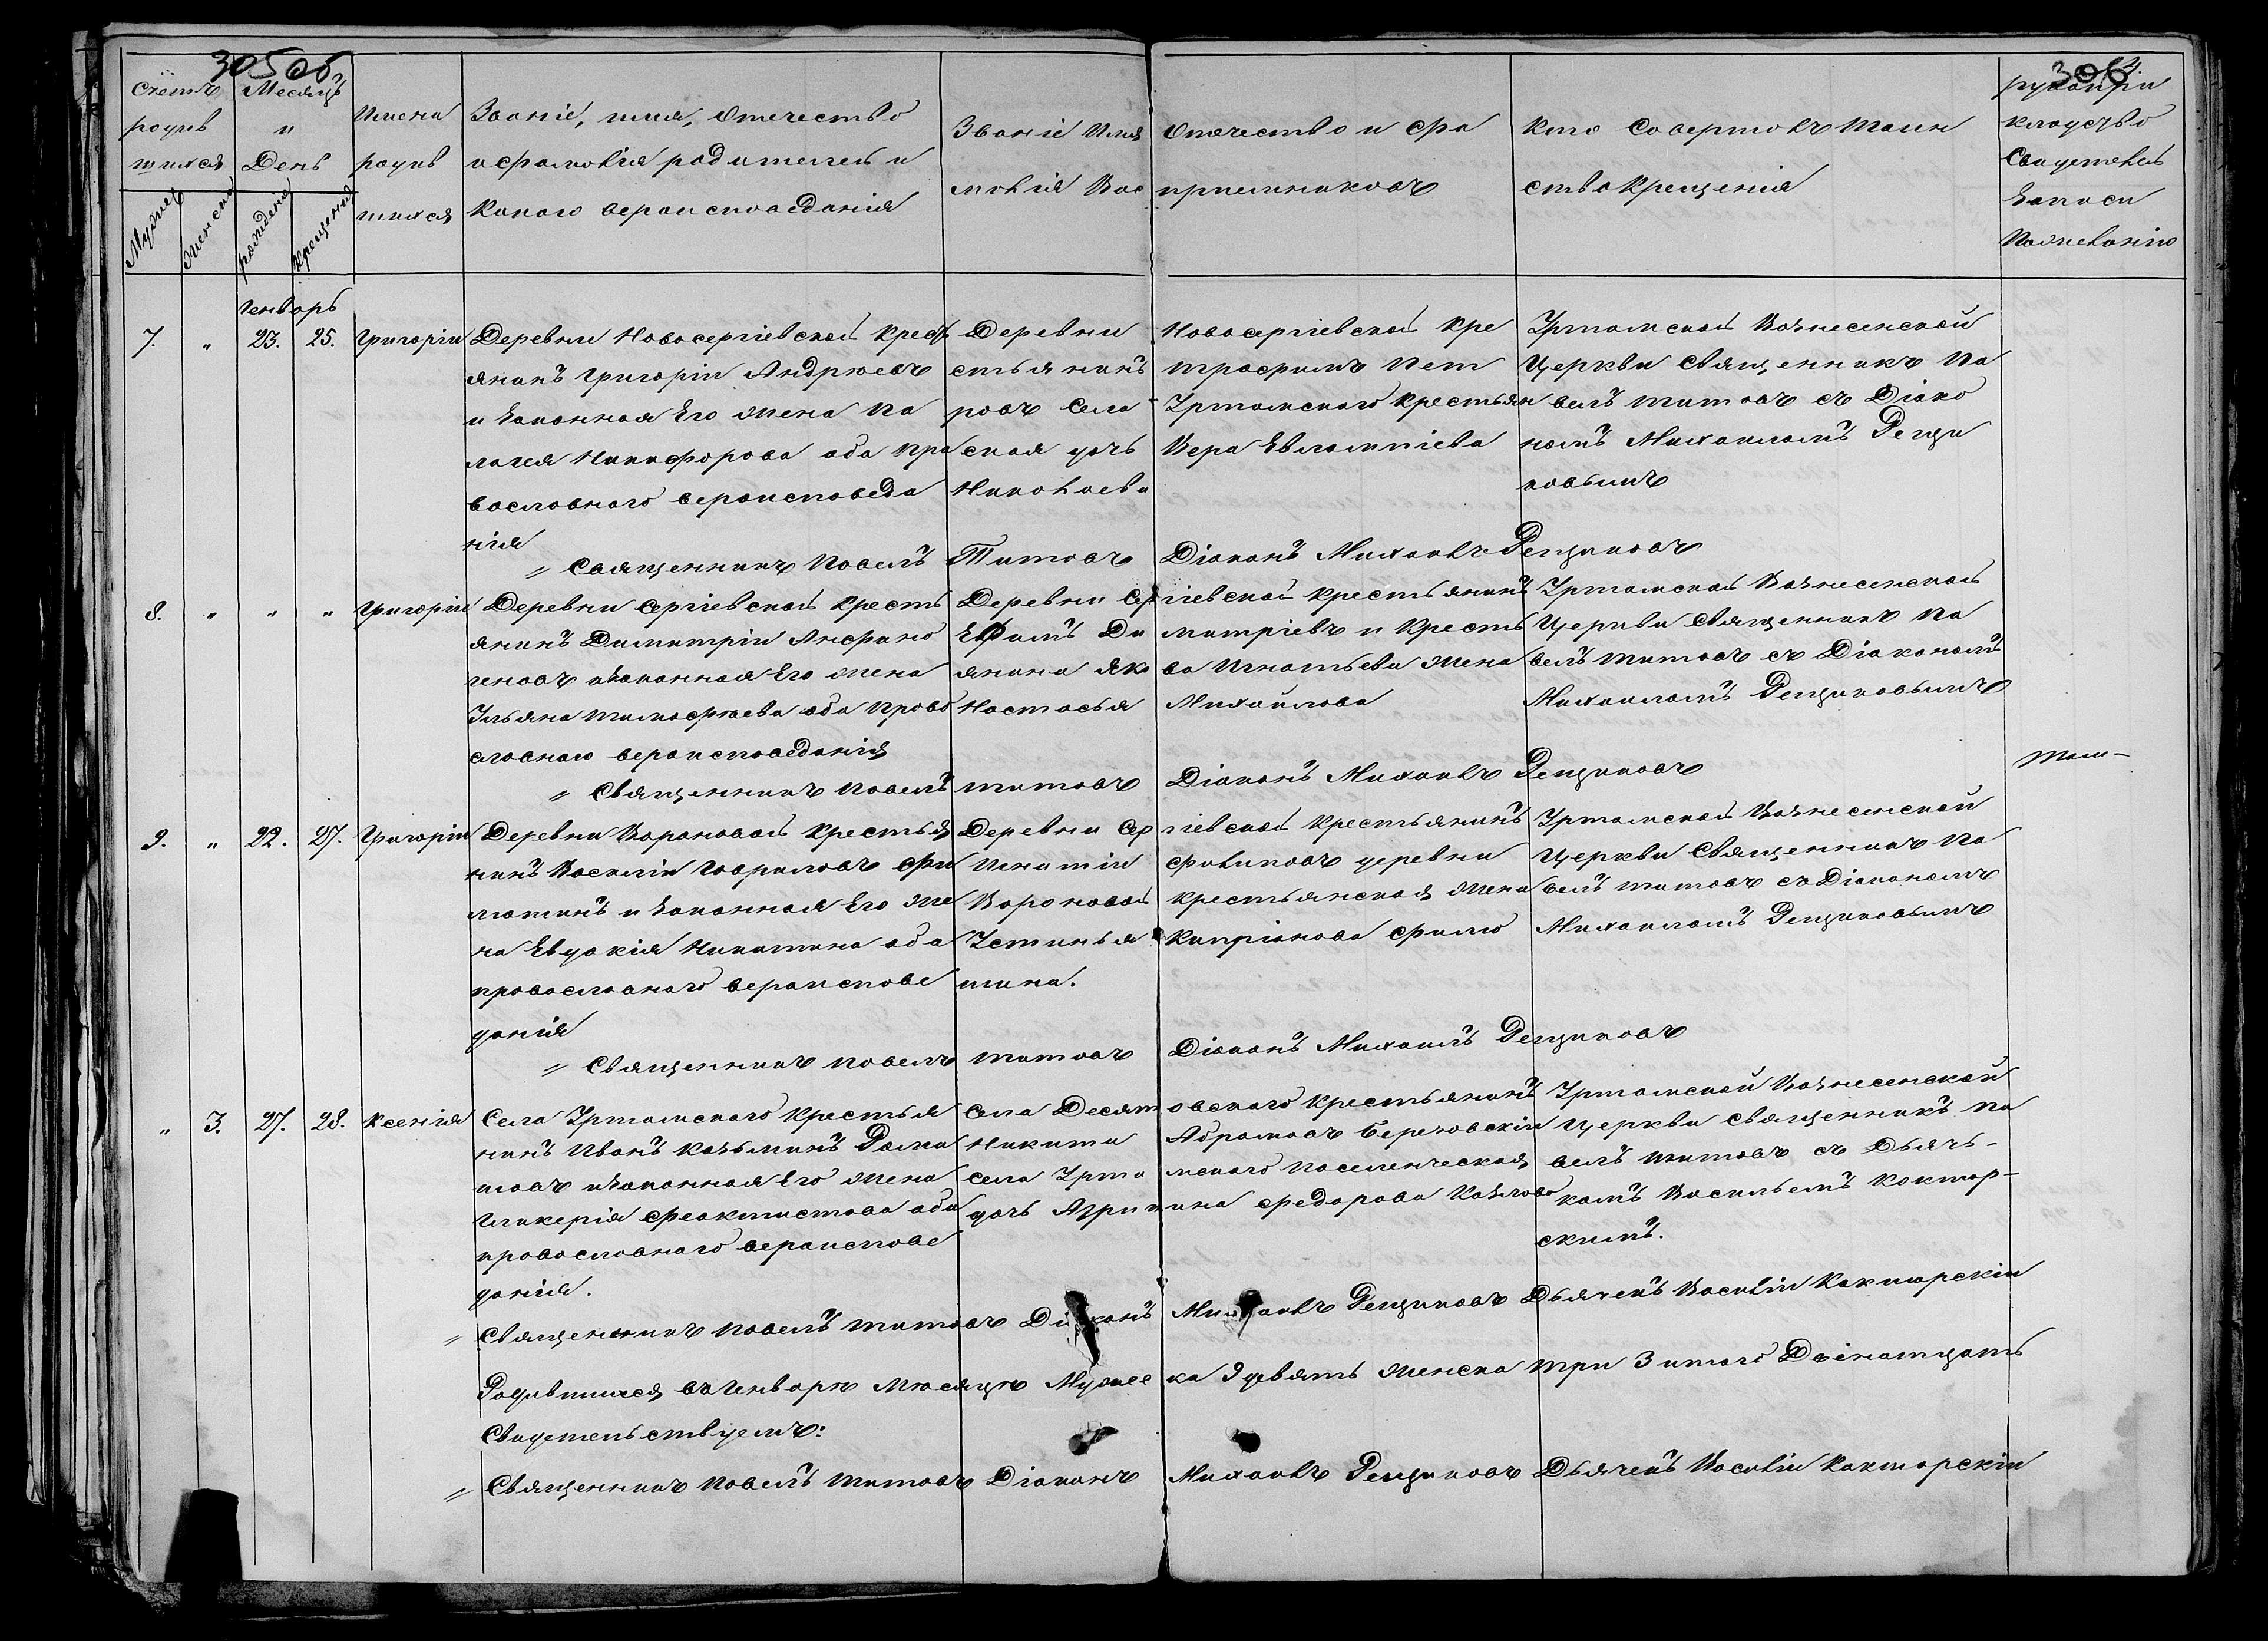 305об
306
Счетъ родив шихся
Мужес
женска
Месяцъ и День
рождения
крещения
Имена родив шихся
Званіе, имя, отечество
и фамилія родителей и
какого вероисповеданія
Званіе Имя Отечество и фа
милія Вос приемниковъ
кто совершалъ таин
ство крещенія
рукопри
кладство
Свидетель
Записи
По желанію
Генварь
7. " 23. 25. Григорій
Деревни Новосергіевской крест
янинъ Григорій Андреевъ
и законная Его жена Па
лагея Никифорова оба пра
вославного вероисповеда
нія
Деревни Новосергіевской кре
стьянинъ Трофимъ Пет
ровъ Села Уртамского крестьян
ская дочь Вера Евлампіева
Николаева
Уртамской Вознесенской
Церкви Священникъ Па
велъ Титовъ съ Діако
номъ Михаиломъ Рещи
ковымъ
" Священникъ Павелъ Титовъ Діаконъ Михаилъ Рещиковъ
8. " " " Григорій
Деревни Сергіевской кресть
янинъ Димитрій Анфино
геновъ и законная Его жена
Ульяна Тимофеева оба право
славнаго вероисповеданія
Деревни Сергіевской крестьянинъ
Ефимъ Ди митріевъ и кресть
янина Яко ва Игнатьева жена
Настасья Михайлова
Уртамской Вознесенской
Церкви Священникъ Па
велъ Титовъ съ Діакономъ
Михаиломъ Рещиковымъ
" Священникъ Павелъ Титовъ Діаконъ Михаилъ Рещиковъ
9. " 22. 27. Григорій
Деревни Вороновой крестья
нинъ Василій Гавриловъ Фи
латинъ и законная Его же
на Евдокія Никитина оба
православного вероиспове
данія
Деревни Сергіевской крестьянинъ
Игнатій Филиповъ деревни
Вороновой крестьянская жена
Устинья Кипріанова Фила
тина.
Уртамской Вознесенской
Церкви Священникъ Па
велъ Титовъ съ Діакономъ
Михаиломъ Рещиковымъ
" Священникъ Павелъ Титовъ Діаконъ Михаилъ Рещиковъ
" 3. 27. 28. Ксенія
Села Уртамского крестья
нинъ Иванъ Козьминъ Рома
шовъ и законная Его жена
Гликерія Феоктистова оба
православного вероиспове
данія.
Села Десятовского крестьянинъ
Никита Абрамовъ Березовскій
села Уртамского поселенческая
дочь Агрипина Федорова Козлова
Уртамской Вознесенской
Церкви священникъ Па
велъ Титовъ съ Дьяч-
комъ Васильемъ Коктор-
скимъ.
" Священникъ Павелъ Титовъ Діаконъ Михаилъ Рещиковъ Дьячекъ Василій Какторскій
Родившихся въ Генваре месяце Мужес ка 9 девять женска три 3 итого Двенатцать
Свидетельствуемъ:
" Священникъ Павелъ Титовъ Діаконъ Михаилъ Рещиковъ Дьячекъ Василій Какторскій